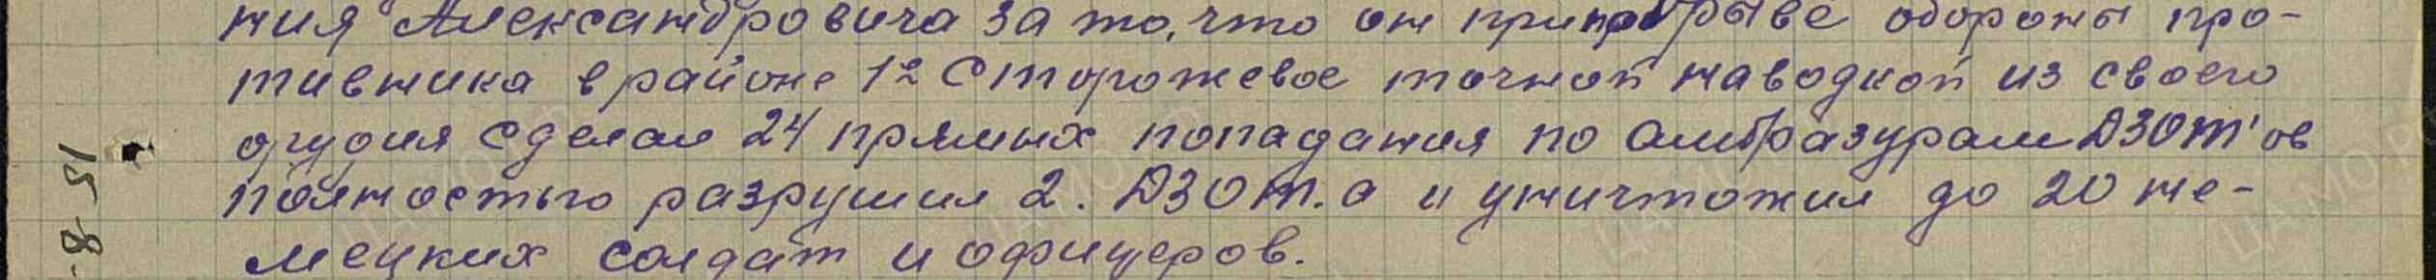 ния Александровича за то, что он при прорыве обороны про-
тивника в районе 1е Сторожевое точной наводкой из своего
орудия сделал 24 прямых попадания по амбразурам ДЗОТ'ов
полностью разрушил 2. ДЗОТ.а и уничтожил до 20 не-
мецких солдат и офицеров.
15
-8-